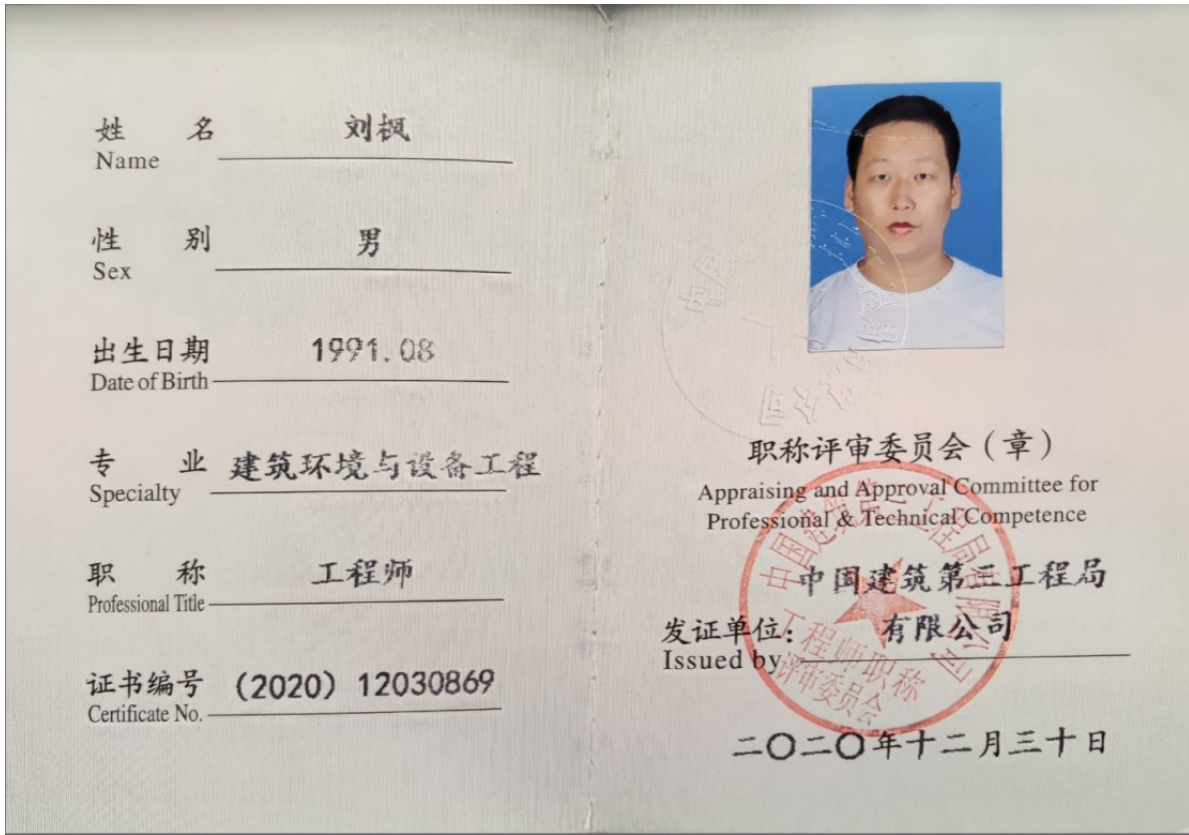 姓名 刘枫
Name
性别 男
Sex
出生日期 1991.08
Date of Birth
专业 建筑环境与设备工程
Specialty
职称 工程师
Professional Title
证书编号 (2020) 12030869
Certificate No.
职称评审委员会（章）
Appraising and Approval Committee for
Professional & Technical Competence
中国建筑第二工程局
发证单位： 有限公司
Issued by
二〇二〇年十二月三十日
中国建筑第二工程局有限公司
工程师职称
评审委员会